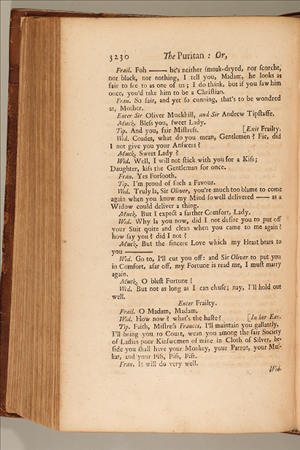 3230 The Puritan : Or,
Frail. Foh —— he's neither smoak-dryed, nor scorcht,
nor black, nor nothing, I tell you, Madam, he looks as
fair to see to as one of us; I do think, but if you saw him
once, you'd take him to be a Christian.
Fran. So fair, and yet so cunning, that's to be wondred
at, Mother.
Enter Sir Oliver Muckhill, and Sir Andrew Tipstaffe.
Muck. Bless you, sweet Lady.
Tip. And you, fair Mistress. [Exit Frailty.
Wid. Coades, what do you mean, Gentlemen? Fie, did
I not give you your Answers?
Muck. Sweet Lady?
Wid. Well, I will not stick with you for a Kiss;
Daughter, kiss the Gentleman for once.
Fran. Yes Forsooth.
Tip. I'm proud of such a Favour.
Wid. Truly la, Sir Oliver, you're much too blame to come
again when you know my Mind so well delivered —— as a
Widow could deliver a thing.
Muck. But I expect a farther Comfort, Lady.
Wid. Why la you now, did I not desire you to put off
your Suit quite and clean when you came to me again?
how say you? did I not?
Muck. But the sincere Love which my Heart bears to
you ——
Wid. Go to, I'll cut you off: and Sir Oliver to put you
in Comfort, afar off, my Fortune is read me, I must marry
again.
Muck. O blest Fortune!
Wid. But not as long as I can chuse; nay, I'll hold out
well.
Enter Frailty.
Frail. O Madam, Madam.
Wid. How now? what's the haste? [In her Ear.
Tip. Faith, Mistress Frances, I'll maintain you gallantly,
I'll bring you to Court, wean you among the fair Society
of Ladies poor Kinswomen of mine in Cloth of Silver, be-
side you shall have your Monkey, your Parrot, your Mus-
kat, and your Piss, Piss, Piss.
Fran. It will do very well.
Wid.